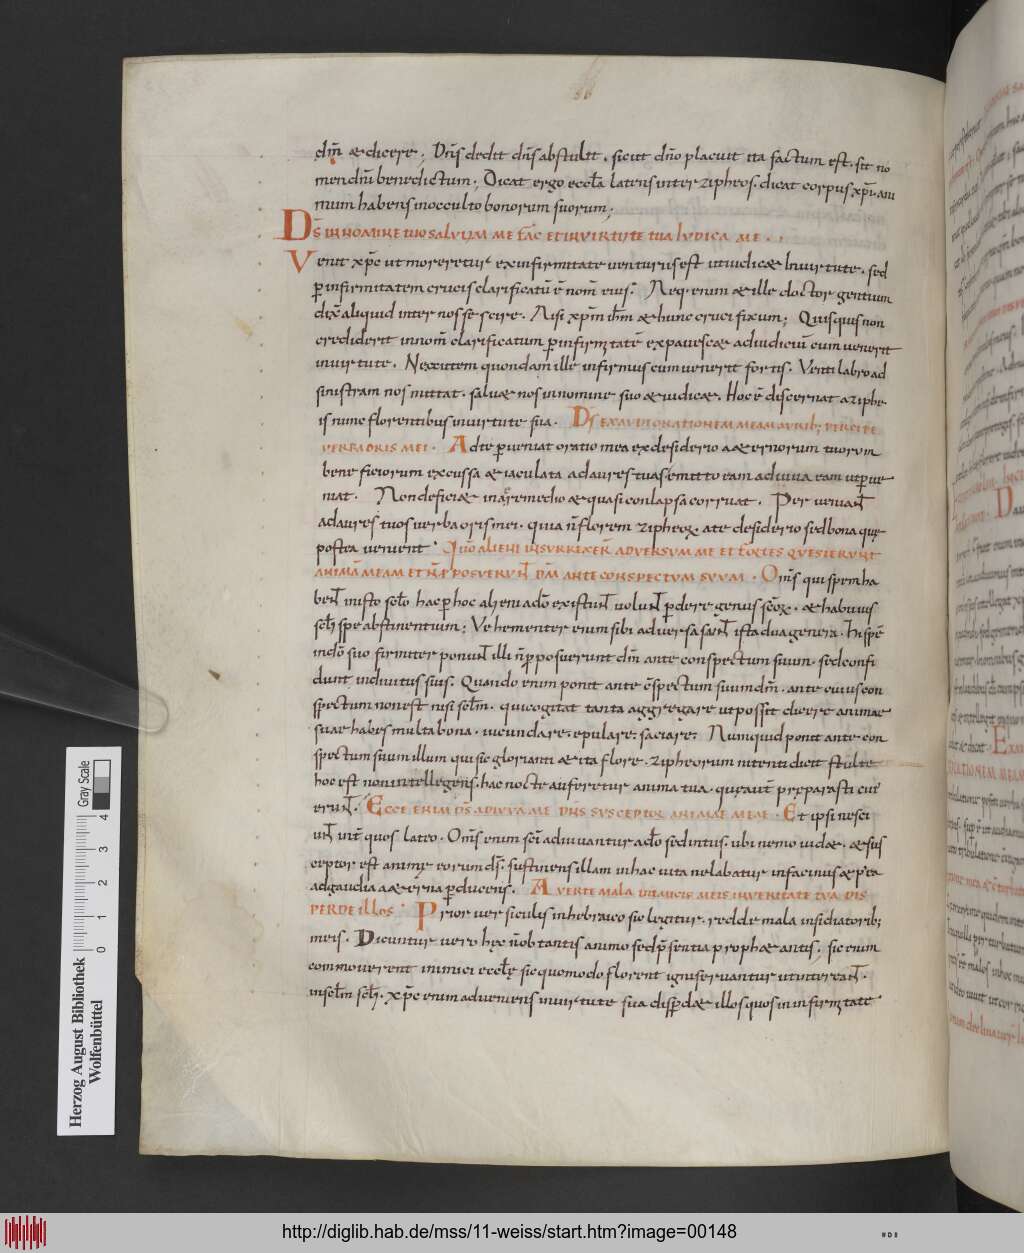 dm̄ & dicere; Dn̄s dedit dn̄s abstulit. sicut dn̄o placuit ita factum est. sit no
men dn̄i benedictum; Dicat ergo eccła latens inter zipheos. dicat corpus xp̄i. ani
mum habens inocculto bonorum suorum;
Dś IN NOMINE TUO SALVUM ME FAC ET IN VIRTUTE TUA IUDICA ME.
Venit xp̄c ut moreretur exinfirmitate uenturus est ut iudic& In uirtute. sed
ꝑ infirmitatem crucis clarificatū ē nom̄ eius. Neq· enim & ille doctor gentium
dix̄ aliquid inter nos se scire. Nisi xp̄m ih̄m & hunc crucifixum; Quisquis non
crediderit in nom̄ clarificatum ꝑ infirmitatē expauesc& ad iudiciū cum uenerit
in uirtute. Ne autem quondam ille infirmus cum uenerit fortis. Ventilabro ad
sinistram nos mittat. salu& nos in nomine suo & iudic&. Hoc ē discernat a ziphe
is nunc florentibus in uirtute sua. Dś EXAUDI ORATIONEM MEAM AURIB; PERCIPE
VERBA ORIS MEI. Ad te ꝑueniat oratio mea ex desiderio a&ernorum tuorum
beneficiorum excussa & iaculata ad aures tuas emitto eam adiuua eam ut ꝑue
niat. Non deficiat in a remedio & quasi conlapsa corruat. Per ueniat
ad aures tuos uerba oris mei. quia n̄ florem zipheoꝝ. a te desiderio sed bona quę
postea uenient. Qm̄ ALIENI INSURREXER̄ ADVERSUM ME ET FORTES QUESIERUNT
ANIMĀ MEAM ET N̄ PROPOSUERUN̄ DM̄ ANTE CONSPECTUM SUUM. Om̄s qui spem ha
ben̄ in isto scło hac ꝑ hoc alieni a dō existun̄ uolun̄ ꝑdere genus scōꝝ. & habitus
scłi spe abstinentium; Vehementer enim sibi aduersa san̄ ista dua genera. Hi spē
in dō suo firmiter ponun̄ illi n̄ ꝓposuerunt dm̄ ante conspectum suum. sed confi
dunt in diuitiis suis. Quando enim ponit ante c̄spectum suum dm̄. ante cuius con
spectum non est nisi scłm. qui cogitat tanta aggregare ut possit dicere animae
suae habes multa bona. iucundare. epulare. saciare. Numquid ponit ante con
spectum suum illum qui sic glorianti & ita flore. zipheorum nitenti dicit stulte
hoc est non intellegens. hac nocte auferetur anima tua. quę aut̄ pręparasti cui
erun̄. ECCE ENIM Dś ADIUVA ME DN̄S SUSCEPTOR ANIMAE MEAE. Et ipsi nesci
un̄ int̄ quos lateo. Om̄s enim scī adiuuantur a dō sed intus. ubi nemo uid&. & sus
ceptor est animę eorum dś. sustinens illam in hac uita ne labatur in facinus & p̄ea
ad gaudia a&erna ꝑducens. AVERTE MALA INIMICIS MEIS IN VERITATE TUA DIS
PERDE ILLOS. Prior uersiculus in hebraeo sic legitur. redde mala insidiatorib;
meis. Dicuntur uero hęc n̄ obtantis animo sed p̄sentia proph&antis. sic enim
commouerent inimici ecclę sic quomodo florent igni seruantur ut intereant̄.
in scłm scłi. xp̄c enim adueniens in uirtute sua disꝑd& illos quos in infirmitate
Herzog August Bibliothek
Wolfenbüttel
Gray Scale
0 1 2 3 4
http://diglib.hab.de/mss/11-weiss/start.htm?image=00148